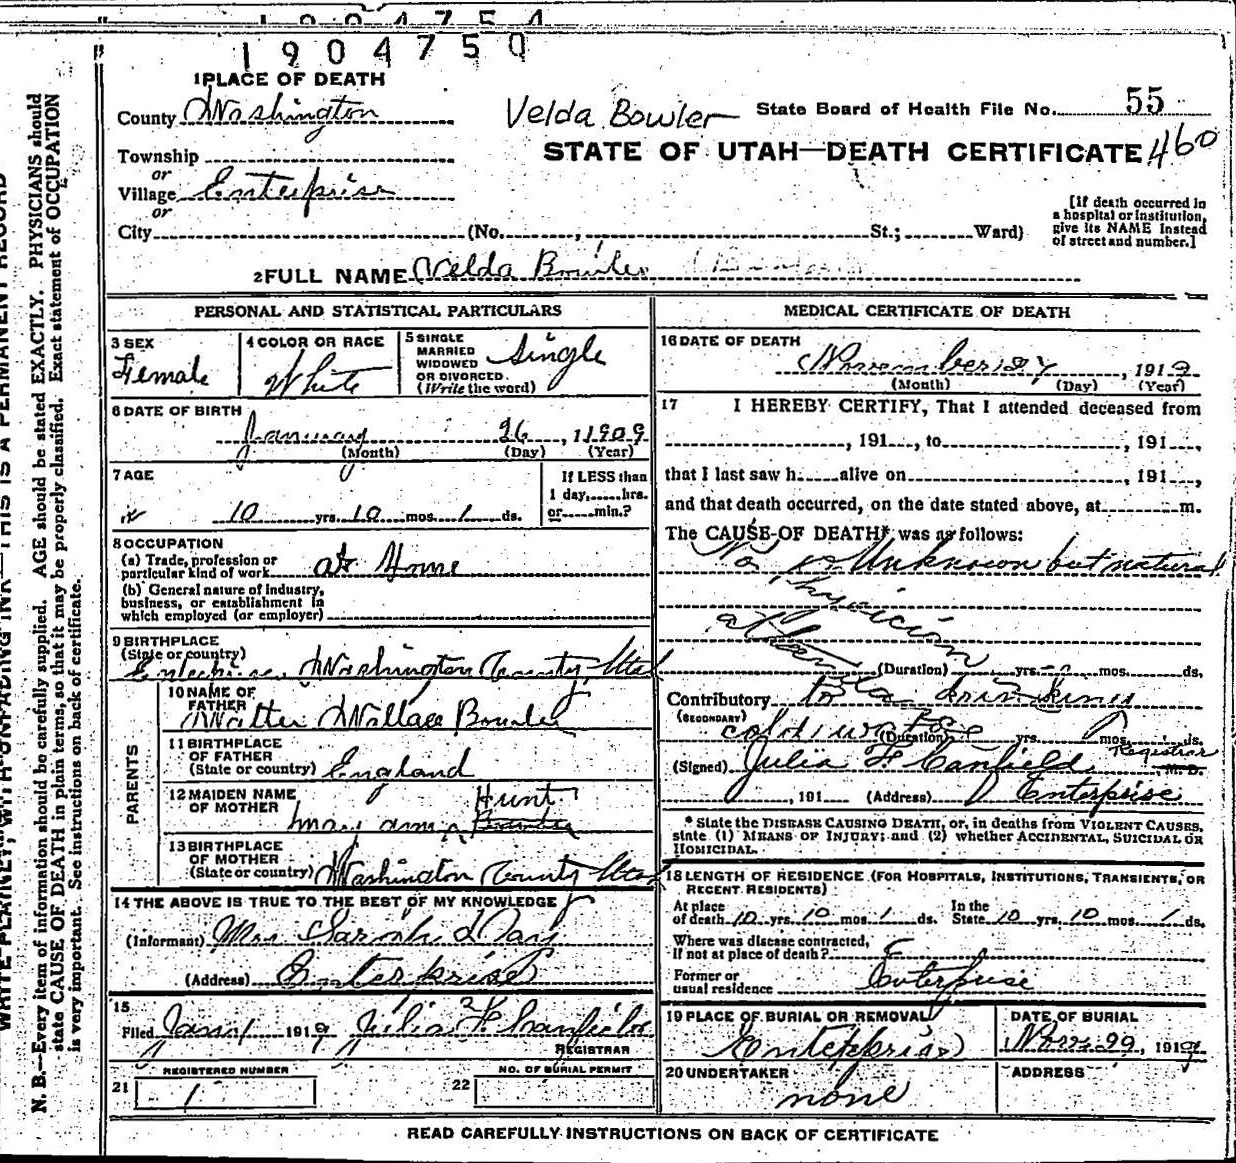 1904754
1904750
1 PLACE OF DEATH
County Washington
Velda Bowler
State Board of Health File No. 55
Township
STATE OF UTAH—DEATH CERTIFICATE 460
or
Village Enterprise
or
City (No. , St.; Ward)
[If death occurred in
a hospital or institution,
give its NAME instead
of street and number.]
2 FULL NAME Velda Bowler
PERSONAL AND STATISTICAL PARTICULARS
3 SEX
Female
4 COLOR OR RACE
White
5 SINGLE
MARRIED
WIDOWED
OR DIVORCED
(Write the word)
Single
6 DATE OF BIRTH
January 26, 1909
(Month) (Day) (Year)
7 AGE
10 yrs. 10 mos. 1 ds.
If LESS than
1 day, hrs.
or min.?
8 OCCUPATION
(a) Trade, profession or
particular kind of work at Home
(b) General nature of industry,
business, or establishment in
which employed (or employer)
9 BIRTHPLACE
(State or country)
Enterprise, Washington County, Utah
PARENTS
10 NAME OF
FATHER
Walter Wallace Bowler
11 BIRTHPLACE
OF FATHER
(State or country) England
12 MAIDEN NAME
OF MOTHER
Hunt
Mary Anna
13 BIRTHPLACE
OF MOTHER
(State or country) Washington County Utah
14 THE ABOVE IS TRUE TO THE BEST OF MY KNOWLEDGE
(Informant) Mrs Sarah Day
(Address) Enterprise
15
Filed Jan 1 1919 Julia F Canfield
REGISTRAR
REGISTERED NUMBER
21 1
NO. OF BURIAL PERMIT
22
MEDICAL CERTIFICATE OF DEATH
16 DATE OF DEATH
November 27, 1919
(Month) (Day) (Year)
17 I HEREBY CERTIFY, That I attended deceased from
, 191 , to , 191 ,
that I last saw h alive on , 191 ,
and that death occurred, on the date stated above, at m.
The CAUSE OF DEATH* was as follows:
No Unknown but natural
Physician
(Duration) yrs. mos. ds.
Contributory to drinking
(SECONDARY)
cold water
(Duration) yrs. mos. ds.
Registrar
(Signed) Julia F Canfield M. D.
, 191 (Address) Enterprise
* State the DISEASE CAUSING DEATH, or, in deaths from VIOLENT CAUSES,
state (1) MEANS OF INJURY; and (2) whether ACCIDENTAL, SUICIDAL OR
HOMICIDAL.
18 LENGTH OF RESIDENCE (FOR HOSPITALS, INSTITUTIONS, TRANSIENTS, OR
RECENT RESIDENTS)
At place
of death 10 yrs. 10 mos. 1 ds.
In the
State 10 yrs. 10 mos. 1 ds.
Where was disease contracted,
If not at place of death?
Former or
usual residence Enterprise
19 PLACE OF BURIAL OR REMOVAL
Enterprise
DATE OF BURIAL
Nov 29, 1919
20 UNDERTAKER
none
ADDRESS
READ CAREFULLY INSTRUCTIONS ON BACK OF CERTIFICATE
WRITE PLAINLY, WITH UNFADING INK—THIS IS A PERMANENT RECORD
N. B.—Every item of information should be carefully supplied. AGE should be stated EXACTLY. PHYSICIANS should
state CAUSE OF DEATH in plain terms, so that it may be properly classified. Exact statement of OCCUPATION
is very important. See instructions on back of certificate.